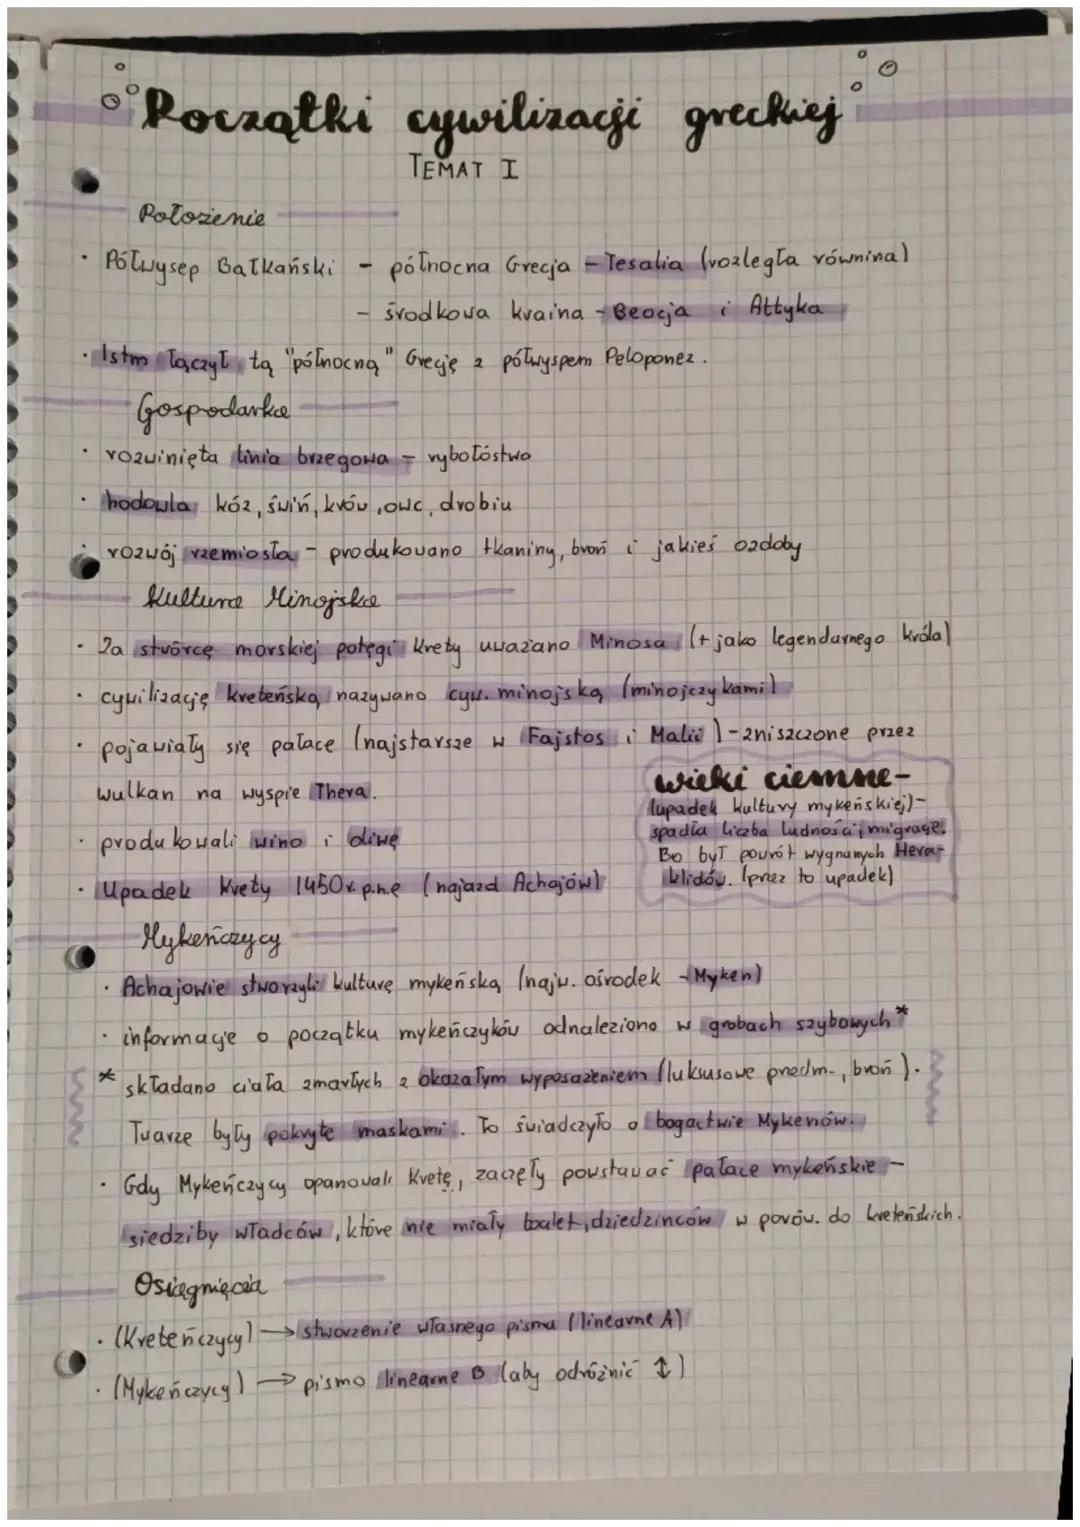 Początki cywilizacji greckiej
TEMAT I
Położenie
· Półwysep Bałkański - północna Grecja - Tesalia (rozległa równina)
- środkowa kraina - Beocja i Attyka
· Istm łączył tą "północną" Grecję z półwyspem Peloponez.
Gospodarka
· rozwinięta linia brzegowa - rybołóstwo
· hodowla kóz, świń, krów, owc, drobiu
· rozwój rzemiosła - produkowano tkaniny, broń i jakieś ozdoby
Kultura Minojska
· Za stwórcę morskiej potęgi Krety uważano Minosa (+ jako legendarnego króla)
· cywilizację kreteńską nazywano cyw. minojską (minojczykami)
· pojawiały się pałace (najstarsze w Fajstos i Malii) - zniszczone przez
wulkan na wyspie Thera.
· produkowali wino i oliwę
· Upadek Krety 1450r. p.n.e (najazd Achajów)
wieki ciemne-
(upadek kultury mykeńskiej)-
spadła liczba ludności i migracje.
Bo był powrót wygnanych Hera-
klidów. (przez to upadek)
Mykeńczycy
· Achajowie stworzyli kulturę mykeńską (najw. ośrodek - Myken)
· informacje o początku mykeńczyków odnaleziono w grobach szybowych*
* składano ciała zmarłych z okazałym wyposażeniem (luksusowe przedm., broń).
Twarze były pokryte maskami. To świadczyło o bogactwie Mykenów.
· Gdy Mykeńczycy opanowali Kretę, zaczęły powstawać pałace mykeńskie -
siedziby władców, które nie miały toalet, dziedzińców w porów. do kreteńskich.
Osiągnięcia
· (Kreteńczycy) → stworzenie własnego pisma (linearne A)
· (Mykeńczycy) → pismo linearne B (aby odróżnić ↕)